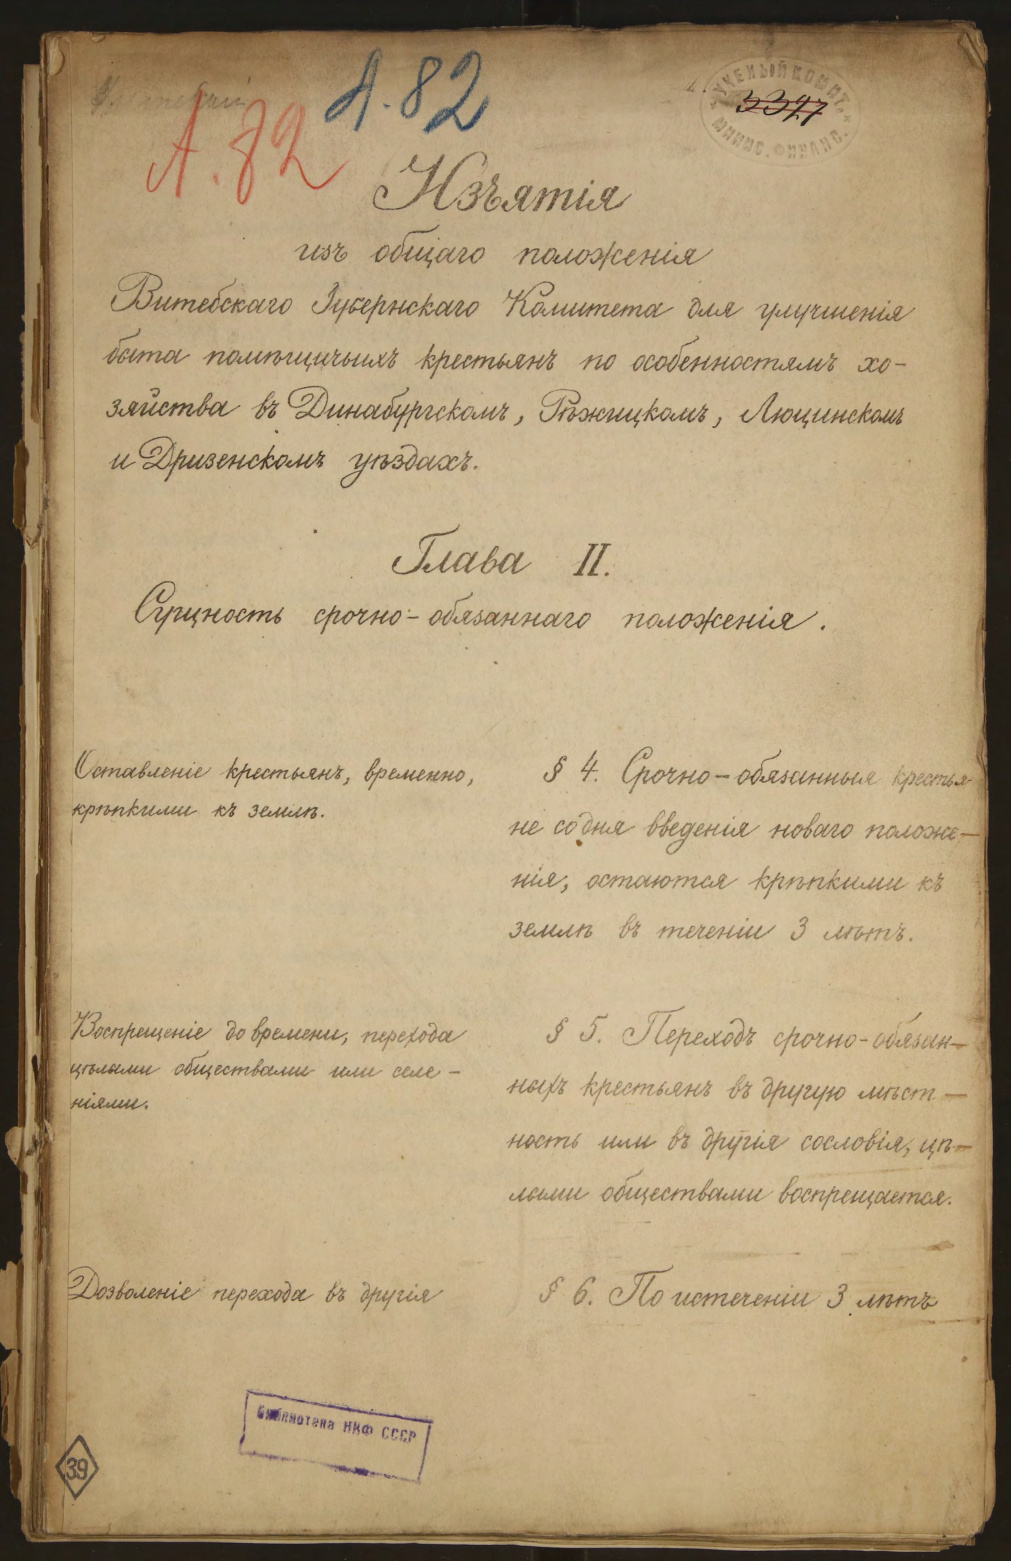 А. 82
А. 82
УЧЕНЫЙ КОМИТ.
3397
МИНИС. ФИНАНС.
Изъятія
изъ общаго положенія
Витебскаго Губернскаго Комитета для улучшенія
быта помѣщичьихъ крестьянъ по особенностямъ хо-
зяйства въ Динабургскомъ, Рѣжицкомъ, Люцинскомъ
и Дризенскомъ уѣздахъ.
Глава II.
Сущность срочно-обязаннаго положенія.
Оставленіе крестьянъ, временно,
крѣпкими къ землѣ.
§ 4. Срочно-обязанныя крестья-
не со дня введенія новаго положе-
нія, остаются крѣпкими къ
землѣ въ теченіи 3 лѣтъ.
Воспрещеніе до времени, перехода
цѣлыми обществами или селе-
ніями.
§ 5. Переходъ срочно-обязан-
ныхъ крестьянъ въ другую мѣст-
ность или въ другія сословія, цѣ-
лыми обществами воспрещается.
Дозволеніе перехода въ другія
§ 6. По истеченіи 3 лѣтъ
Библиотека НКФ СССР
39